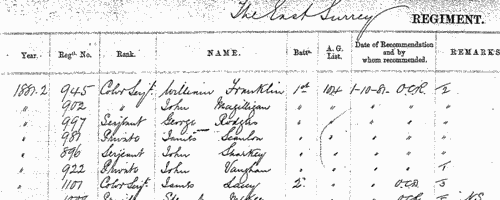 The East Surrey REGIMENT.
Year. Regtl. No. Rank. NAME. Batn. A. G. List. Date of Recommendation and by whom recommended. REMARKS
1881-2 945 Color Serjt. William Franklin 1st 104 1-10-81- O.C.R.
" 902 " John Magilligan " " " "
" 997 Serjeant George Rodgers " " " "
" 987 Private James Scanlon " " "
" 896 Serjeant John Sharkey " " " "
" 922 Private John Vaughan " " " "
" 1107 Color Serjt. James Lacey 2. " " O.C.R.